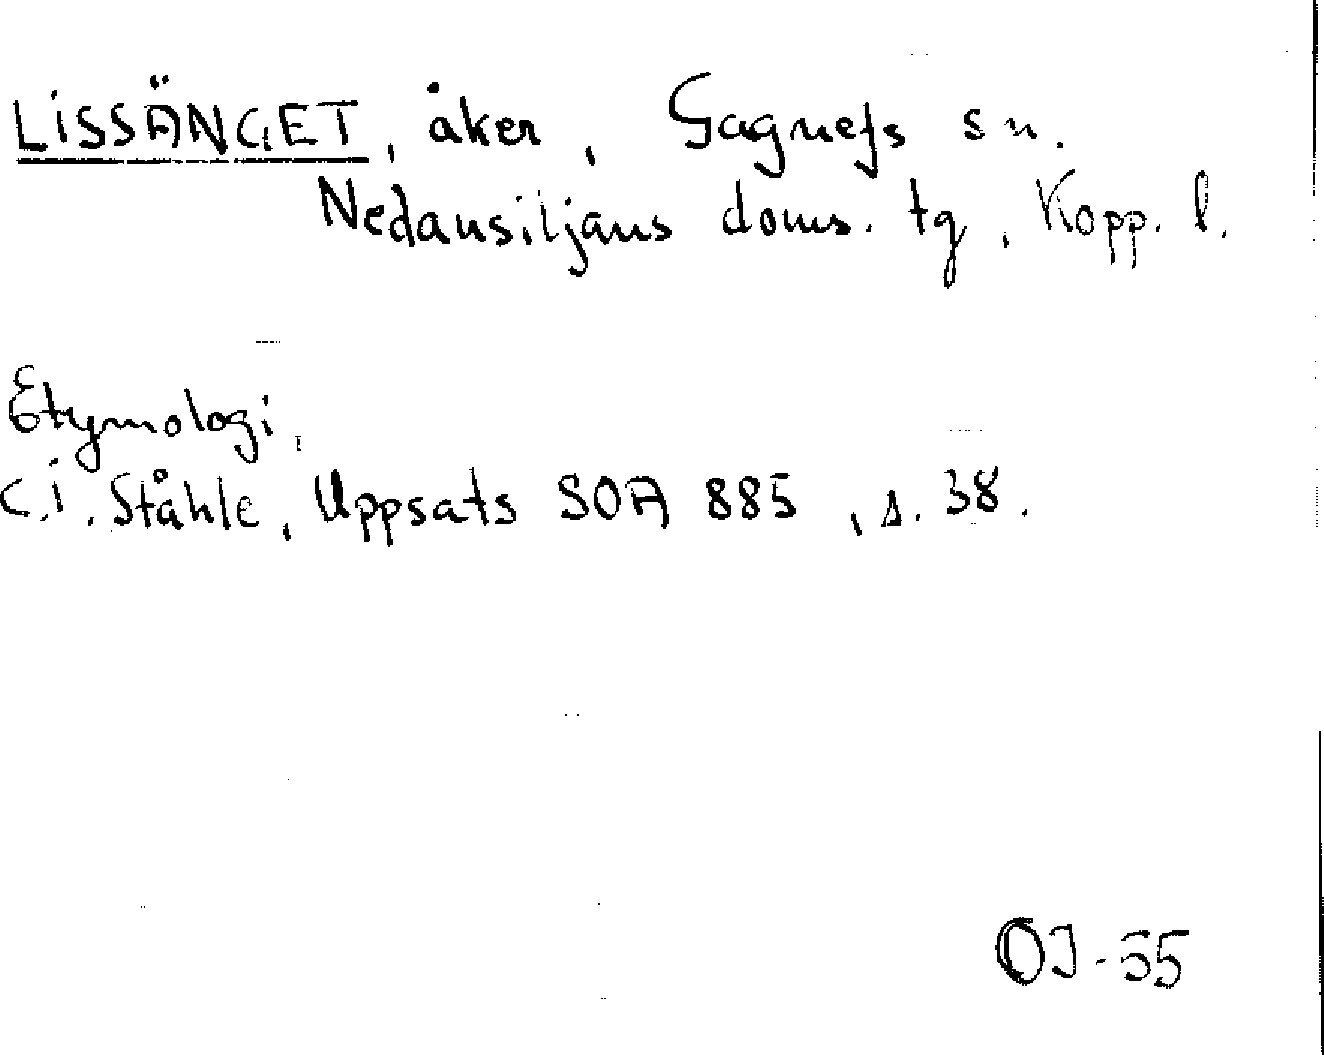 LISSÄNGET, åker, Gagnefs sn.
Nedansiljans doms. tg, Kopp. l.
Etymologi,
C.I. Ståhle, Uppsats SOA 885, s. 38.
OJ-55